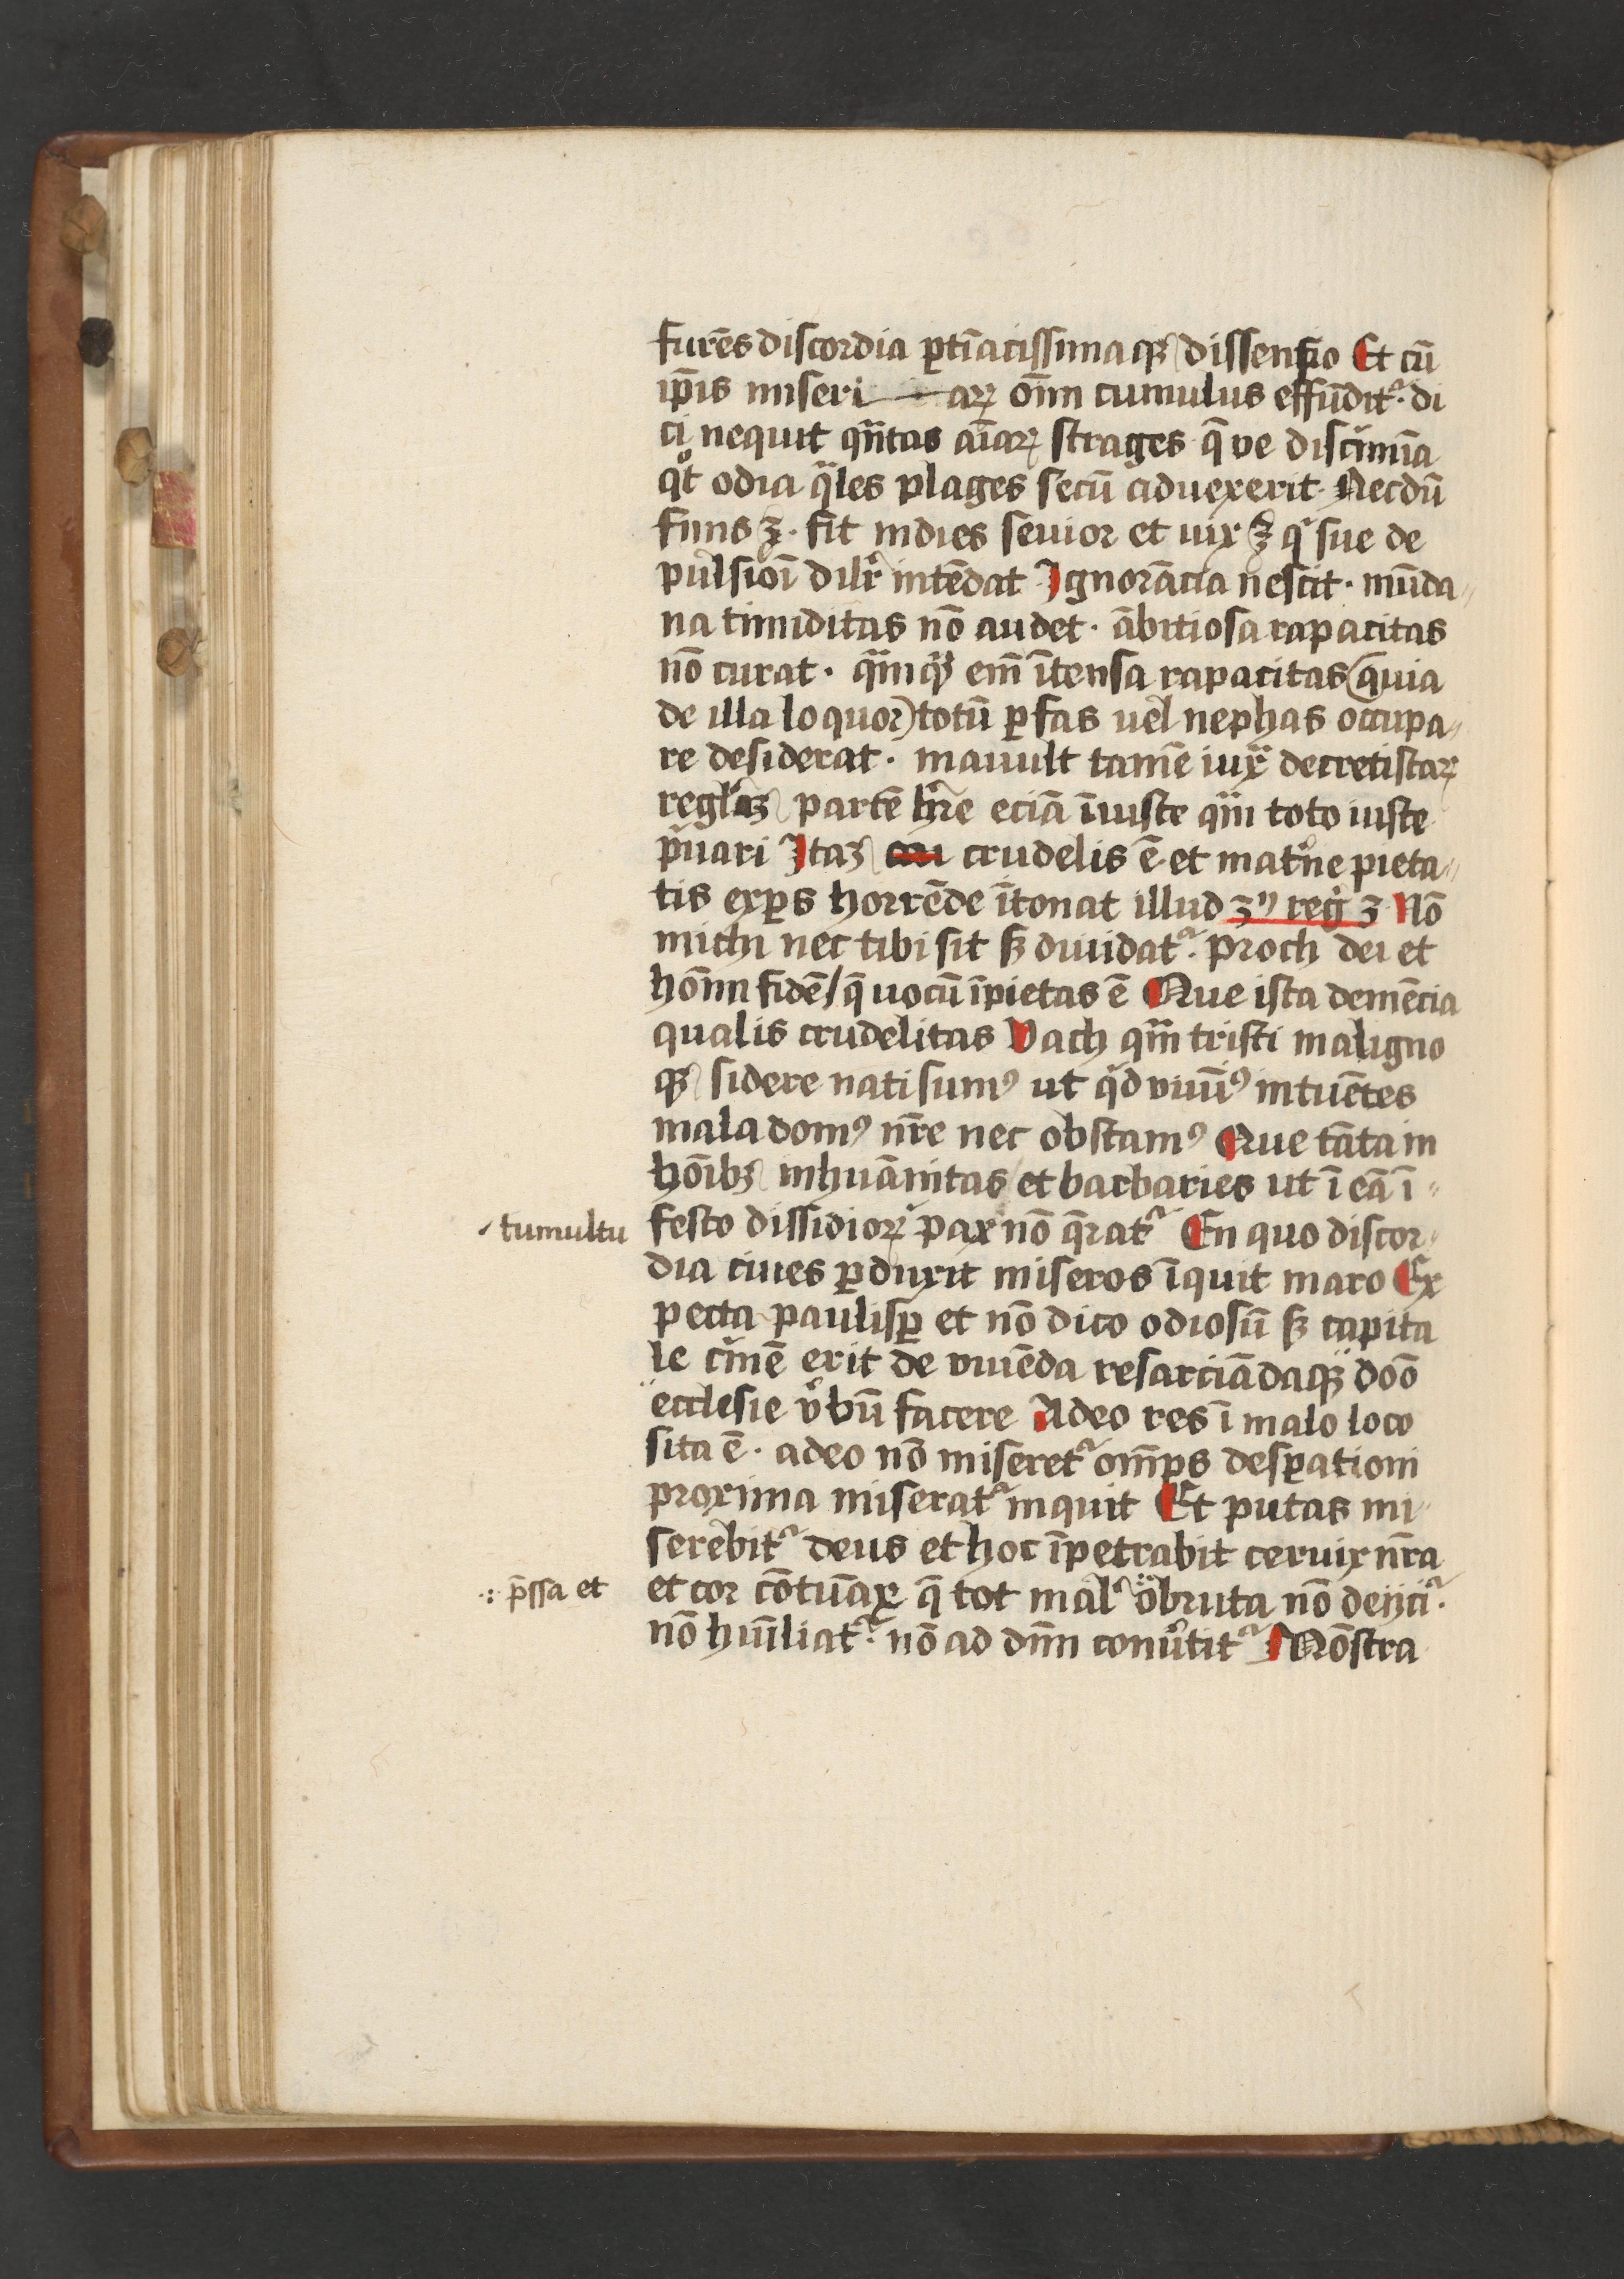 furēs discordia ꝑtīacissimaqꝫ dissensio Et cū
ip̄is miseri arꝝ oīm cumulus effūdit᷑· di
ci nequit qn̄tas aīarꝝ strages q̄ ve discͥmīa
qͦt odia qͣles plages secū aduexerit· Necdū
finis ꝫ· fit indies seuior et uix ꝫ qͥ sue de
pulsioī dilr̄ intēdat Ignorācia nescit· mūda〃
na timiditas nō audet· ābitiosa rapacitas
nō curat· qͣmqͣꝫ em̄ ītensa rapacitas (quia
de illa loquor) totū ꝑ fas uel nephas occupa〃
re desiderat· mauult tamē iuxͣ decretistaꝝ
reglāꝫ partē hr̄e eciā īiuste qͣm toto iuste
pͥuari Itaꝫ crudelis ē et mat͛ne pieta〃
tis exꝑs horrēde ītonat illud 3⁹ reg̛ 3 Nō
michi nec tibi sit sꝫ diuidat᷑· proch dei et
hoīm fidē / q̄ uocū īpietas ē Que ista demēcia
qualis crudelitas Vach qͣm tristi maligno
qꝫ sidere nati sumꝰ ut qͥd viuīꝰ intuētes
mala domꝰ nr̄e nec obstamꝰ Que tāta in
hoībꝫ inhuāmitas et barbaries ut ī eā ī〃
tumultu festo dissidioꝝ pax nō q̄rat᷑ En quo discor〃
dia ciues ꝑduxit miseros īquit maro Ex
pecta paulisꝑ et nō dico odiosū sꝫ capita
le cͥmē erit de viuēda resarciādaqꝫ doō
ecclesie v͛bū facere Adeo res ī malo loco
sita ē· adeo nō miseret᷑ om̄ps desꝑationi
proxima miserat᷑ inquit Et putas mi〃
serebit᷑ deus et hoc īpetrabit ceruix nr̄a
∴ p̄ssa et et cor cōtūax q̄ tot mal᷑ obruta nō deijci᷑·
nō hūīliat᷑· nō ad dn̄m conu͛tit᷑ Nōstra